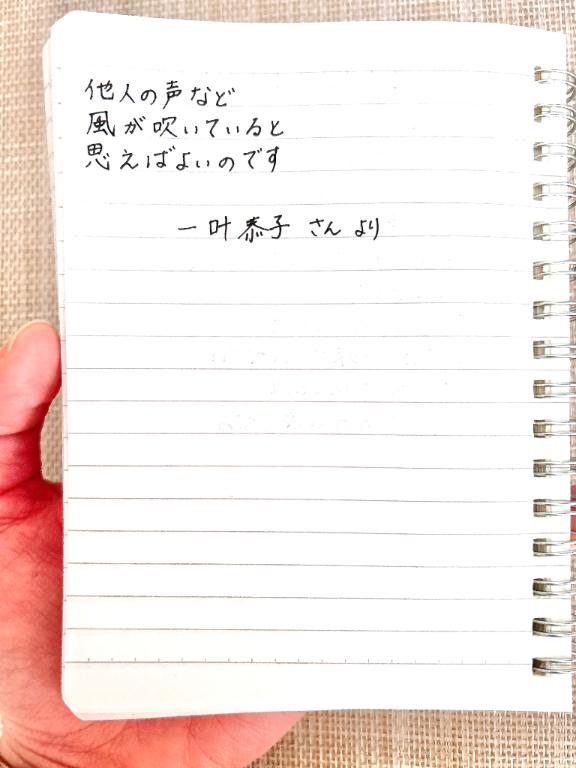 他人の声など
風が吹いていると
思えばよいのです
一叶恭子 さん より